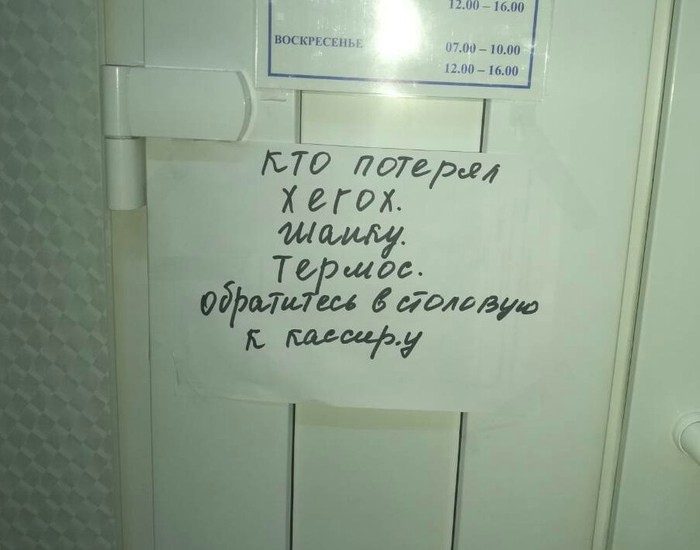 12.00 – 16.00
ВОСКРЕСЕНЬЕ 07.00 – 10.00
12.00 – 16.00
КТО потерял
xerox.
Шапку.
Термос.
обратитесь в столовую
к кассиру